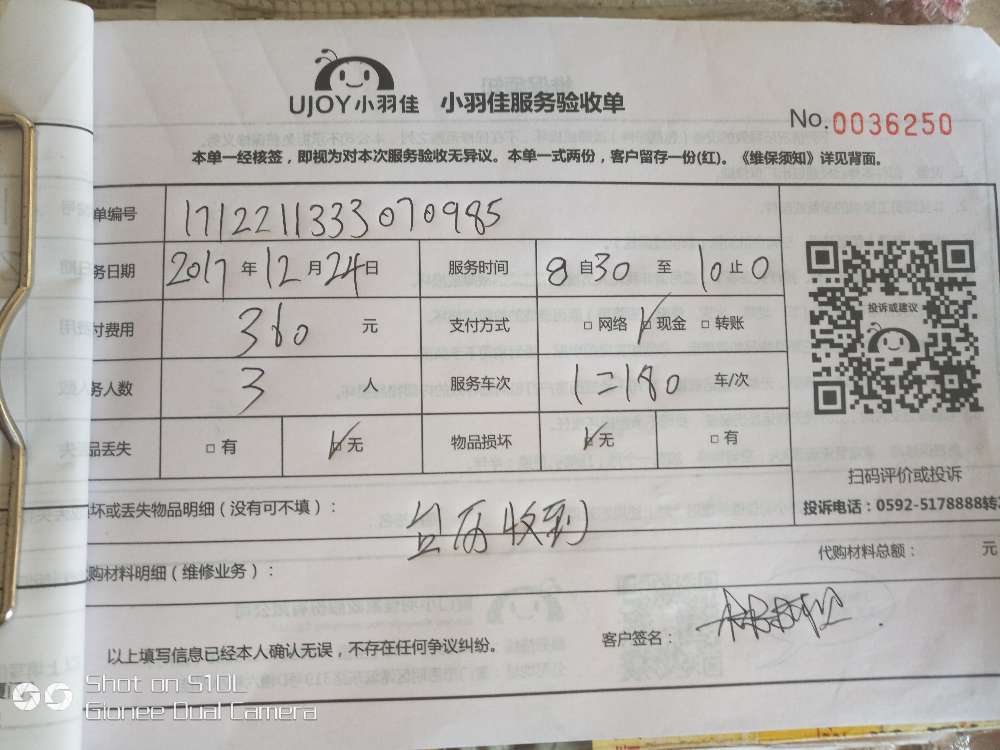 UJOY小羽佳 小羽佳服务验收单
No.0036250
本单一经核签，即视为对本次服务验收无异议。本单一式两份，客户留存一份(红)。《维保须知》详见背面。
单编号 1712211333070985
务日期 2017年12月24日 服务时间 8自30至10止0
付费用 360元 支付方式 □网络 ☑现金 □转账
务人数 3人 服务车次 1=180车/次
品丢失 □有 ☑无 物品损坏 ☑无 □有
投诉或建议
扫码评价或投诉
投诉电话：0592-5178888转
坏或丢失物品明细（没有可不填）：
收到
代购材料总额： 元
购材料明细（维修业务）：
以上填写信息已经本人确认无误，不存在任何争议纠纷。
客户签名：
Shot on S10L
Gionee Dual Camera